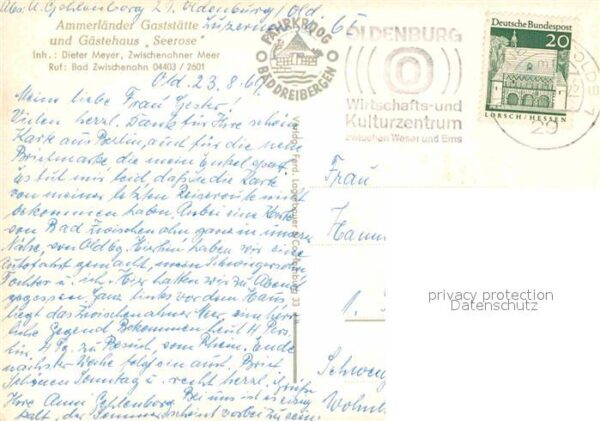 Abs. A. Gehlenborg 29 Oldenburg/Old
Luzernenweg 65
Ammerländer Gaststätte
und Gästehaus „Seerose"
Inh.: Dieter Meyer, Zwischenahner Meer
Ruf: Bad Zwischenahn 04403 / 2601
FÄHRKROOG
BAD DREIBERGEN
OLDENBURG
Wirtschafts-und
Kulturzentrum
zwischen Weser und Ems
Deutsche Bundespost
20
LORSCH / HESSEN
29
Old. 23.8.67
Meine liebe Frau
Vielen herzl. Dank für Ihre schöne
Karte aus Berlin, auch für die neue
Briefmarke die mein Enkel
Es tut mir leid, daß Sie die Karte
von meiner letzten Reiseroute nicht
bekommen haben. Anbei eine Karte
von Bad Zwischenahn ganz in unserer
Nähe, von Oldbg. Hierhin haben wir eine
Autofahrt gemacht, mein Schwiegersohn
Tochter u. ich. Hier hatten wir zu Abend
gegessen. Ganz links vor dem Haus,
liegt das Zwischenahner Meer, eine herr-
liche Gegend. Bekommen heut
zu Besuch, vom Rhein. Ende
nächster Woche folgt ein Brief.
Schönen Sonntag u. recht herzl. Grüße
Ihre Anni Gehlenborg. Bei uns ist es
kalt, der Sommer scheint vorbei zu sein
Verlag Ferd. Lagerbauer
Frau
Hann
1.
Schwe
Wohn
privacy protection
Datenschutz